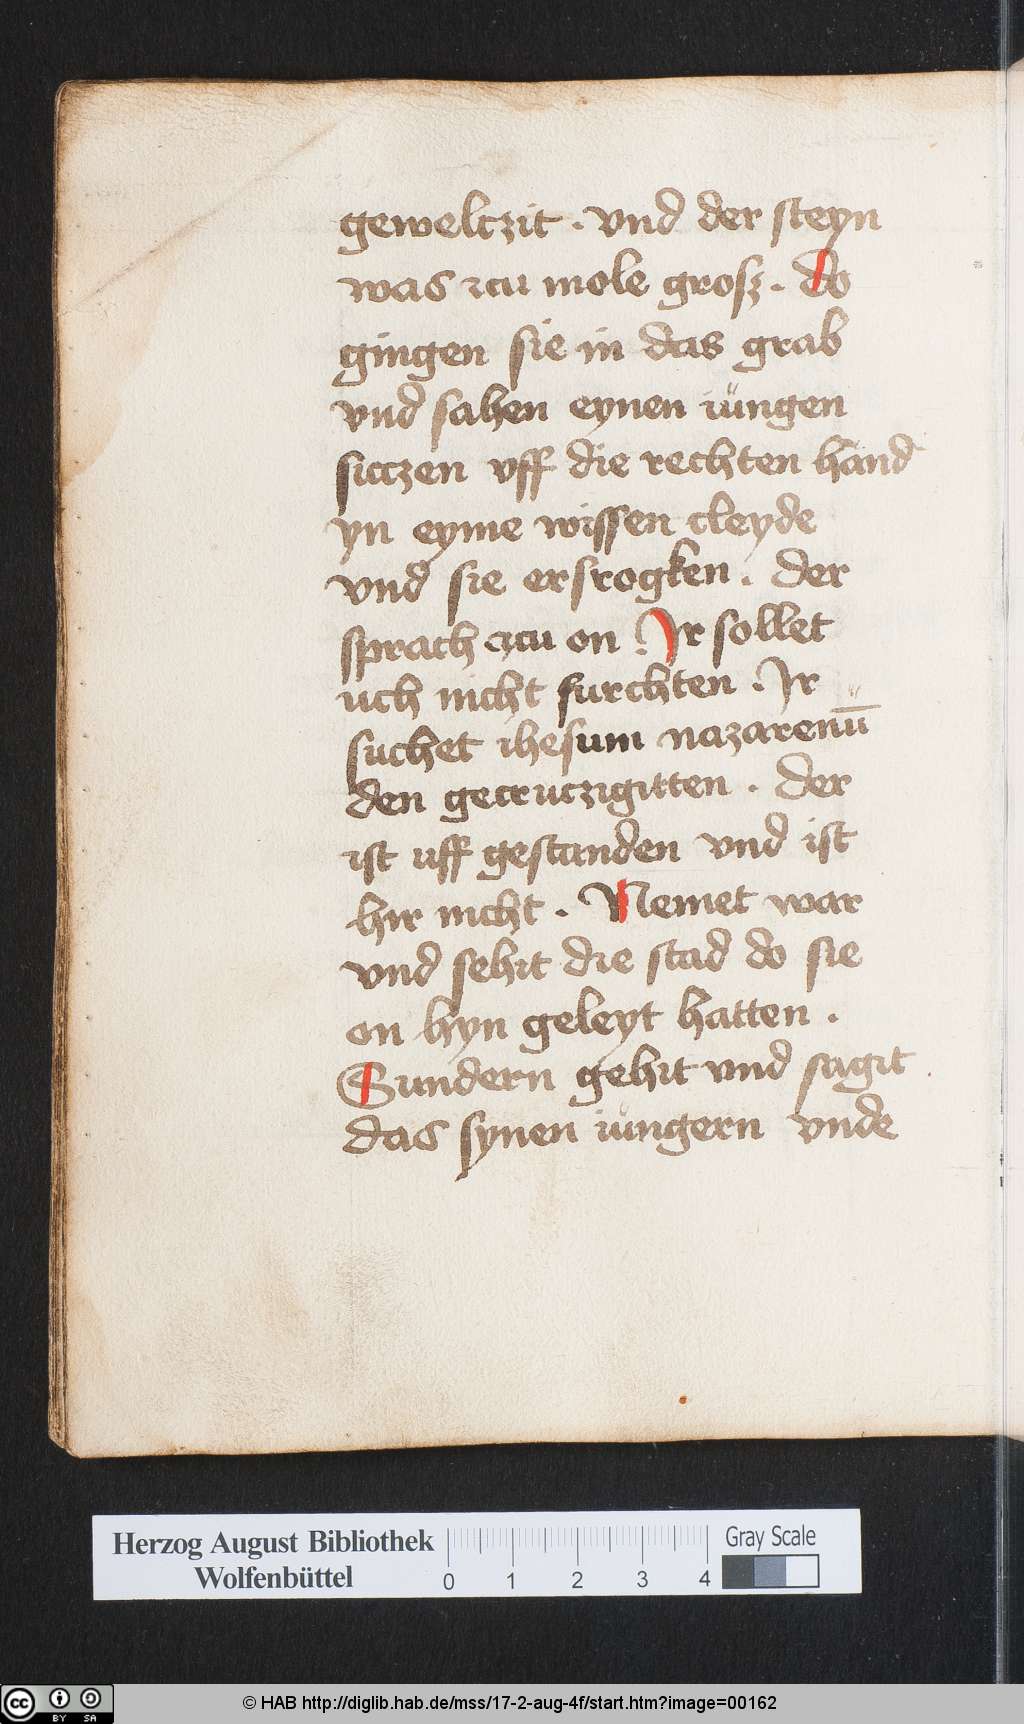 geweltzit . vnd der steyn
was zcu mole grosz . do
gingen sie in das grab
vnd sahen eynen iüngen
sitczen vff die rechten hand
yn eyme wissen cleyde
vnd sie ersrogken . der
sprach zcu on . Ir sollet
uch nicht furchten . Ir
suchet ihesum nazarenū
den gecruczigitten . der
ist uff gestanden vnd ist
hir nicht . Nemet war
vnd sehit die stad do sie
on hyn geleyt hatten .
Sundern gehit vnd sagit
das synen iüngern vnde
Herzog August Bibliothek
Wolfenbüttel
0 1 2 3 4
Gray Scale
cc BY SA
© HAB http://diglib.hab.de/mss/17-2-aug-4f/start.htm?image=00162